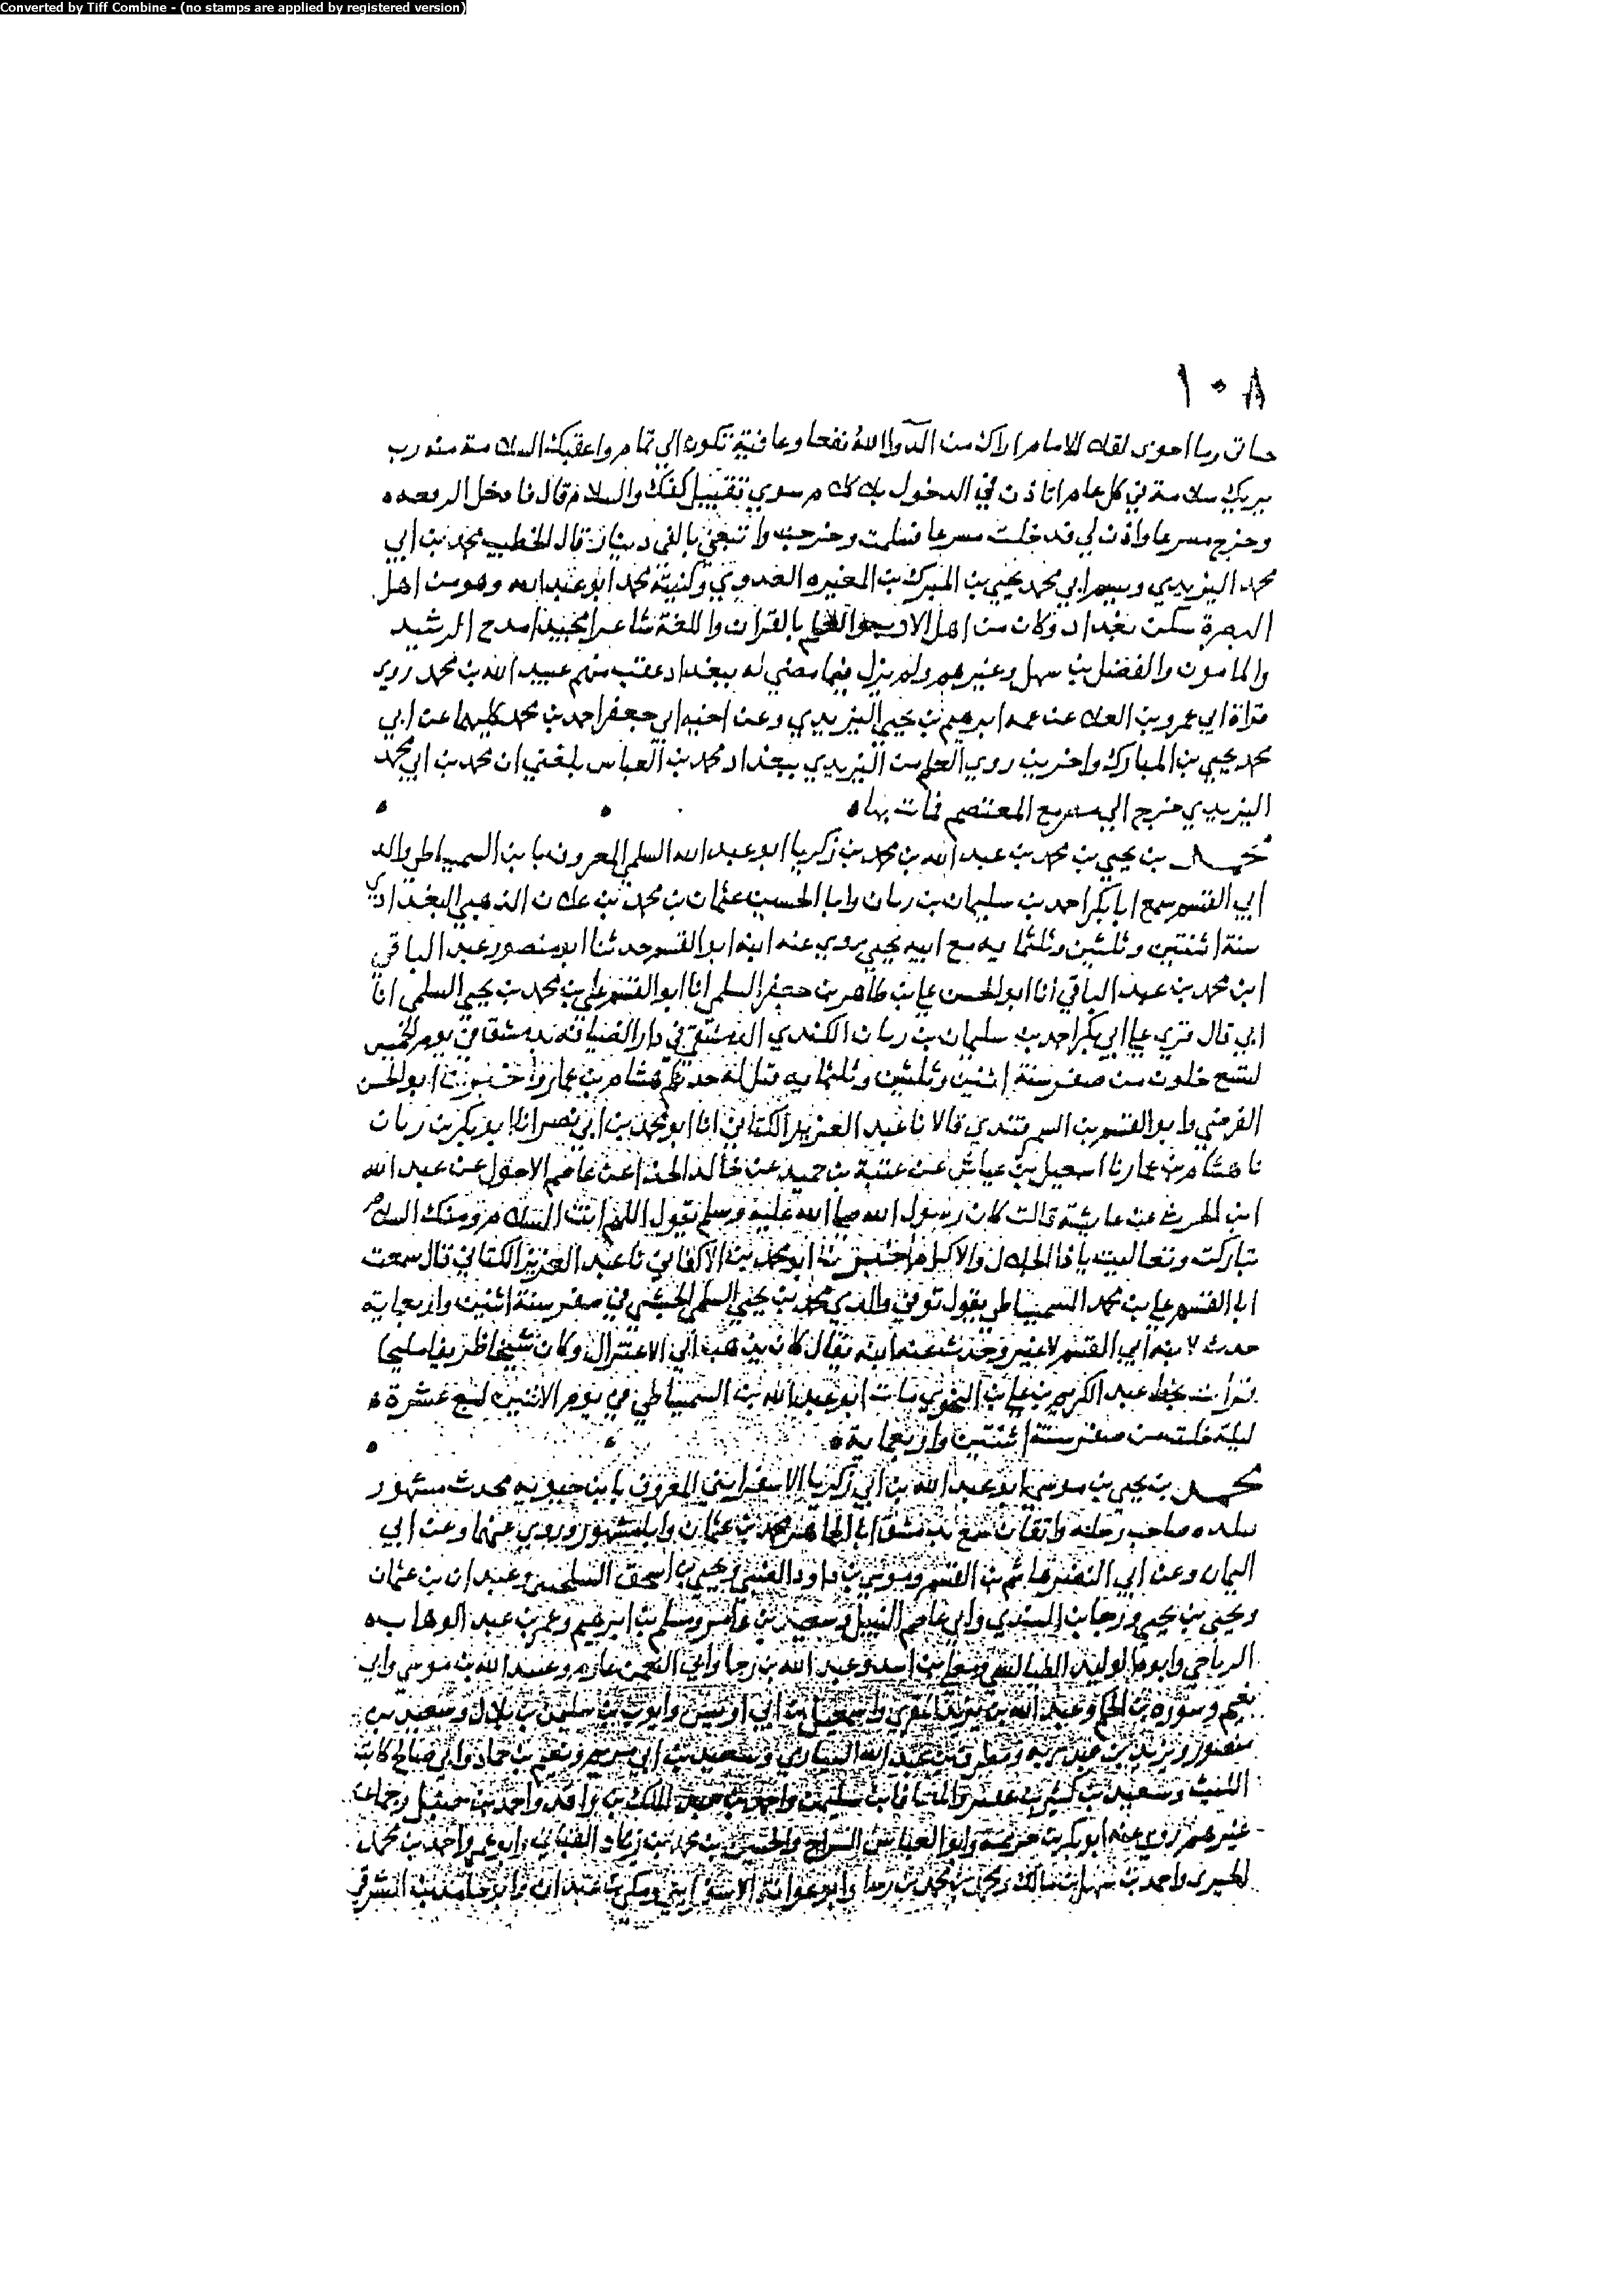 Converted by Tiff Combine - (no stamps are applied by registered version)
١٠٨
للامام اراك من الدوا الله نفعا وعافية تكون الي تمام واعقبك السلامة منه رب
يريك سلامة في كل عام اتاذن في الدخول بلا كلام سوي تقبيل كفك والسلام قال فادخل الرقعه
وخرج مسرعا واذن لي فدخلت مسرعا فسلمت وخرجت واتبعني بالفي دينار قال الخطيب محمد بن ابي
محمد اليزيدي وسم ابي محمد يحيي بن المبرك بن المغيره العدوي وكنية محمد ابو عبد الله وهو من اهل
البصرة سكن بغداد وكان من اهل الادب والعلم بالقران واللغة شاعرا مجيدا مدح الرشيد
والمامون والفضل بن سهل وغيرهم ولم يزل فيما مضي له ببغداد عقب منهم عبيد الله بن محمد روي
قراة ابي عمرو بن العلا عن عمه ابرهيم بن يحيي اليزيدي وعن اخيه ابي جعفر احمد بن محمد كليهما عن ابي
محمد يحيي بن المبارك واخر من روي العلم من اليزيدي ببغداد محمد بن العباس بلغني ان محمد بن ابي محمد
اليزيدي خرج الي مع المعتصم فمات بها
محمد بن يحيي بن محمد بن عبد الله بن محمد بن زكريا ابو عبد الله السلمي المعروف بابن السميساطي والد
ابي القسم سمع ابا بكر احمد بن سليمان بن زبان وابا الحسين عثمان بن محمد بن علان الذهبي البغدادي
سنة اثنتين وثلثين وثلثمايه مع ابيه يحيي روي عنه ابنه ابو القسم حدثنا ابو منصور عبد الباقي
ابن محمد بن عبد الباقي انا ابو الحسن علي بن طاهر بن جعفر السلمي انا ابو القسم علي بن محمد بن يحيي السلمي انا
ابي قال قري علي ابي بكر احمد بن سليمان بن زبان الكندي الدمشقي في دار الضيافة بدمشق في يوم الخميس
لتسع خلون من صفر سنة اثنين وثلثين وثلثمايه قيل له حدثكم هشام بن عمار واخبرنا ابو الحسن
الفرضي وابو القسم بن السمرقندي قالا نا عبد العزيز الكتاني انا ابو محمد بن ابي نصر انا ابو بكر بن زبان
نا هشام بن عمار نا اسمعيل بن عياش عن عتبة بن حميد عن خالد الحذا عن عاصم الاحول عن عبد الله
ابن الحرث عن عايشة قالت كان رسول الله صلي الله عليه وسلم يقول اللهم انت السلام ومنك السلام
تباركت وتعاليت ياذا الجلال والاكرام اخبرنا ابو محمد بن الاكفاني نا عبد العزيز الكتاني قال سمعت
ابا القسم علي بن محمد السميساطي يقول توفي والدي محمد بن يحيي السلمي في صفر سنة اثنين واربعماية
حدث لابنه ابي القسم لا غير وحدث عنه ابنه يقال كان يذهب الي الاعتزال وكان شيخا ظريفا سليما
قرات بخط عبد الكريم بن علي بن النحوي مات ابو عبد الله بن السميساطي في يوم الاثنين لتسع عشرة
ليلة خلت من صفر سنة اثنتين واربعماية
محمد بن يحيي بن موسي ابو عبد الله بن ابي زكريا الاسفرايني المعروف بابن حيويه محدث مشهور
ببلده صاحب رحلة واتقان سمع بدمشق ابا الجماهر محمد بن عثمان وابا مسهر وروي عنهما وعن ابي
اليمان وعن ابي النضر هاشم بن القسم وموسي بن داود الضبي ويحيي بن اسحق السيلحيني وعبدان بن عثمان
ويحيي بن يحيي ورجا بن السندي وابي عاصم النبيل وسعيد بن عامر ومسلم بن ابرهيم وعمر بن عبد الوهاب
الرياحي وابو الوليد الطيالسي ومعلي بن اسد وعبد الله بن رجا وابي النعمن عارم وعبيد الله بن موسي وابي
نعيم وسورة بن الحكم وعبد الله بن يزيد المقري واسمعيل بن ابي اويس وايوب بن سليمن بن بلال وسعيد بن
منصور ويزيد بن عبد ربه ومطرف بن عبد الله اليساري وسعيد بن ابي مريم ونعيم بن حماد وابي صالح كاتب
الليث وسعيد بن كثير بن عفير والمعافا بن سليمن واحمد بن عبد الملك بن واقد واحمد بن حنبل وجماعة
غيرهم روي عنه ابو بكر بن خزيمة وابو العباس السراج والحسين بن محمد بن زياد القباني وابو عمرو احمد بن محمد
الحيري واحمد بن سهل بن مالك ومحمد بن محمد بن رجا وابو عوانة الاسفرايني ومكي بن عبدان وابو حامد بن الشرقي